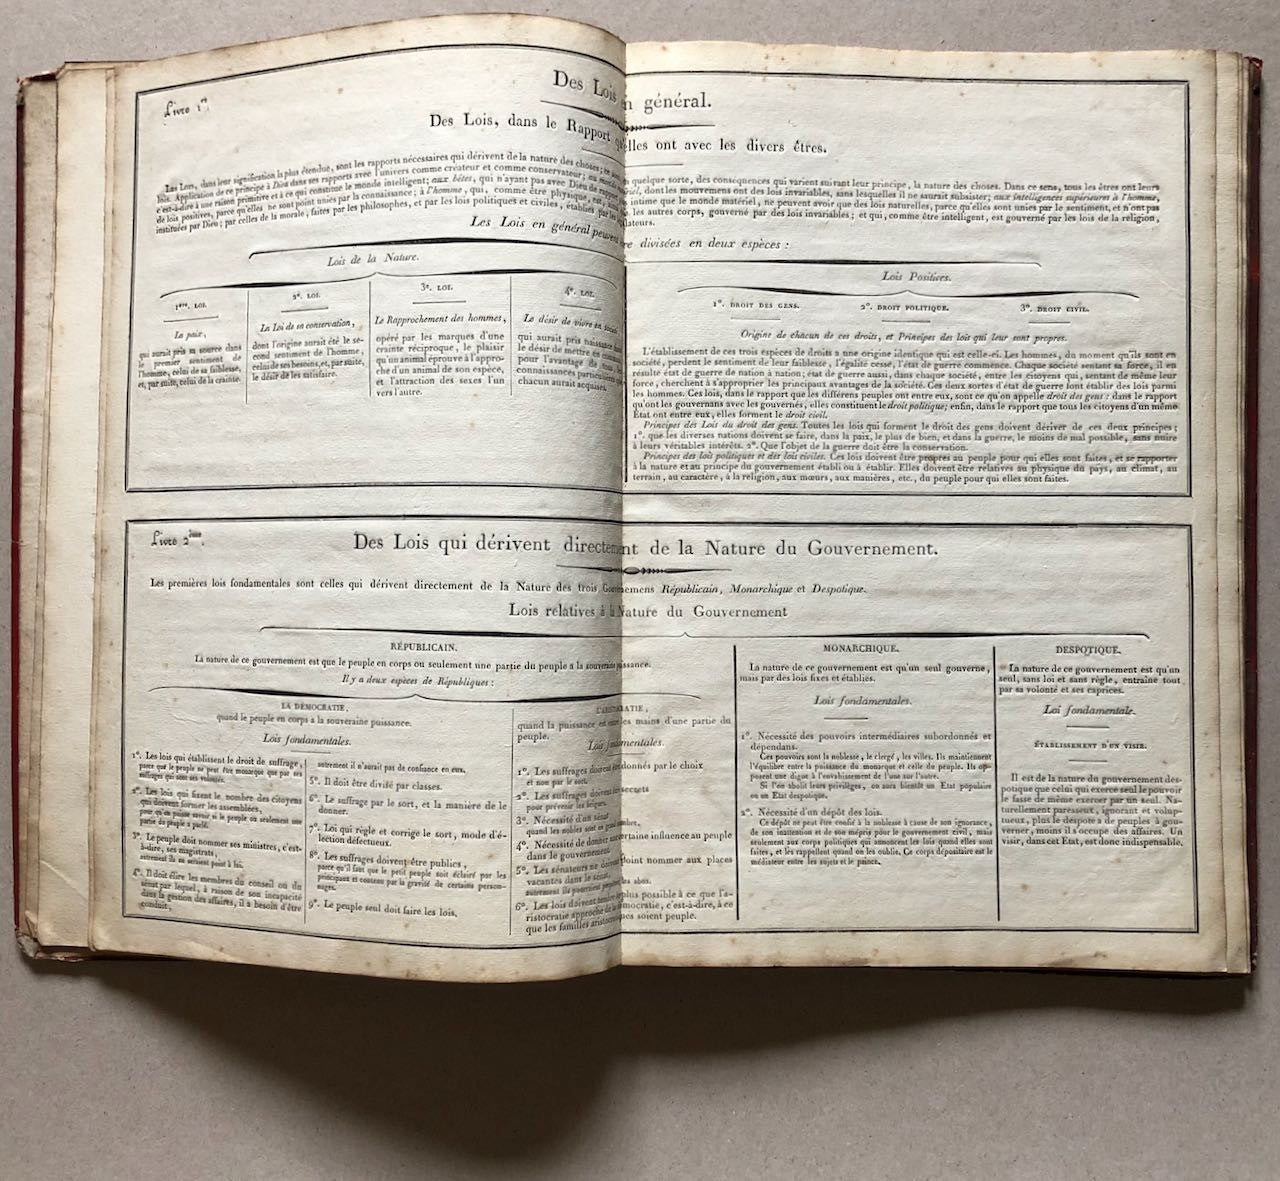 Livre 1er.
Des Lois en général.
Des Lois, dans le Rapport qu'elles ont avec les divers êtres.
Les Lois, dans leur signification la plus étendue, sont les rapports nécessaires qui dérivent de la nature des choses; en quelque sorte, des conséquences qui varient suivant leur principe, la nature des choses. Dans ce sens, tous les êtres ont leurs
lois. Application de ce principe à Dieu dans ses rapports avec l'univers comme créateur et comme conservateur; au monde matériel, dont les mouvemens ont des lois invariables, sans lesquelles il ne saurait subsister; aux intelligences supérieures à l'homme,
c'est-à-dire à une raison primitive et à ce qui constitue le monde intelligent; aux bêtes, qui n'ayant pas avec Dieu de rapport intime que le monde matériel, ne peuvent avoir que des lois naturelles, parce qu'elles sont unies par le sentiment, et n'ont pas
de lois positives, parce qu'elles ne sont point unies par la connaissance; à l'homme, qui, comme être physique, est, les autres corps, gouverné par des lois invariables; et qui, comme être intelligent, est gouverné par les lois de la religion,
instituées par Dieu; par celles de la morale, faites par les philosophes, et par les lois politiques et civiles, établies par les législateurs.
Les Lois en général peuvent être divisées en deux espèces:
Lois de la Nature.
1ère. LOI.
La paix,
qui aurait pris sa source dans
le premier sentiment de
l'homme, celui de sa faiblesse,
et, par suite, celui de la crainte.
2e. LOI.
La Loi de sa conservation,
dont l'origine aurait été le se-
cond sentiment de l'homme,
celui de ses besoins, et, par suite,
le désir de les satisfaire.
3e. LOI.
Le Rapprochement des hommes,
opéré par les marques d'une
crainte réciproque, le plaisir
qu'un animal éprouve à l'appro-
che d'un animal de son espèce,
et l'attraction des sexes l'un
vers l'autre.
4e. LOI.
Le désir de vivre en société
qui aurait pris naissance dans
le désir de mettre en commun
pour l'avantage de tous, les
connaissances particulières que
chacun aurait acquises.
Lois Positives.
1o. DROIT DES GENS.
2o. DROIT POLITIQUE.
3o. DROIT CIVIL.
Origine de chacun de ces droits, et Principes des lois qui leur sont propres.
L'établissement de ces trois espèces de droits a une origine identique qui est celle-ci. Les hommes, du moment qu'ils sont en
société, perdent le sentiment de leur faiblesse, l'égalité cesse, l'état de guerre commence. Chaque société sentant sa force, il en
résulte état de guerre de nation à nation; état de guerre aussi, dans chaque société, entre les citoyens qui, sentant de même leur
force, cherchent à s'approprier les principaux avantages de la société. Ces deux sortes d'état de guerre font établir des lois parmi
les hommes. Ces lois, dans le rapport que les différens peuples ont entre eux, sont ce qu'on appelle droit des gens: dans le rapport
qu'ont les gouvernans avec les gouvernés, elles constituent le droit politique; enfin, dans le rapport que tous les citoyens d'un même
État ont entre eux, elles forment le droit civil.
Principes des Lois du droit des gens. Toutes les lois qui forment le droit des gens doivent dériver de ces deux principes;
1o. que les diverses nations doivent se faire, dans la paix, le plus de bien, et dans la guerre, le moins de mal possible, sans nuire
à leurs véritables intérêts. 2o. Que l'objet de la guerre doit être la conservation.
Principes des lois politiques et des lois civiles. Ces lois doivent être propres au peuple pour qui elles sont faites, et se rapporter
à la nature et au principe du gouvernement établi ou à établir. Elles doivent être relatives au physique du pays, au climat, au
terrain, au caractère, à la religion, aux mœurs, aux manières, etc., du peuple pour qui elles sont faites.
Livre 2ème.
Des Lois qui dérivent directement de la Nature du Gouvernement.
Les premières lois fondamentales sont celles qui dérivent directement de la Nature des trois Gouvernemens Républicain, Monarchique et Despotique.
Lois relatives à la Nature du Gouvernement
RÉPUBLICAIN.
La nature de ce gouvernement est que le peuple en corps ou seulement une partie du peuple a la souveraine puissance.
Il y a deux espèces de Républiques:
LA DÉMOCRATIE,
quand le peuple en corps a la souveraine puissance.
Lois fondamentales.
1o. Les lois qui établissent le droit de suffrage,
parce que le peuple ne peut être monarque que par ses
suffrages qui sont ses volontés.
2o. Les lois qui fixent le nombre des citoyens
qui doivent former les assemblées,
pour qu'on puisse savoir si le peuple ou seulement une
partie du peuple a parlé.
3o. Le peuple doit nommer ses ministres, c'est-
à-dire, ses magistrats,
autrement ils ne seraient point à lui.
4o. Il doit élire les membres du conseil ou du
sénat par lequel, à raison de son incapacité
dans la gestion des affaires, il a besoin d'être
conduit,
autrement il n'aurait pas de confiance en eux.
5o. Il doit être divisé par classes.
6o. Le suffrage par le sort, et la manière de le
donner.
7o. Loi qui règle et corrige le sort, mode d'é-
lection défectueux.
8o. Les suffrages doivent être publics,
parce qu'il faut que le petit peuple soit éclairé par les
principaux et contenu par la gravité de certains person-
nages.
9o. Le peuple seul doit faire les lois.
L'ARISTOCRATIE,
quand la puissance est entre les mains d'une partie du
peuple.
Lois fondamentales.
1o. Les suffrages doivent être donnés par le choix
et non par le sort.
2o. Les suffrages doivent être secrets
pour prévenir les brigues.
3o. Nécessité d'un sénat
quand les nobles sont en grand nombre.
4o. Nécessité de donner une certaine influence au peuple
dans le gouvernement.
5o. Les sénateurs ne doivent point nommer aux places
vacantes dans le sénat,
autrement ils pourraient perpétuer les abus.
6o. Les lois doivent tendre le plus possible à ce que l'a-
ristocratie approche de la démocratie, c'est-à-dire, à ce
que les familles aristocratiques soient peuple.
MONARCHIQUE.
La nature de ce gouvernement est qu'un seul gouverne,
mais par des lois fixes et établies.
Lois fondamentales.
1o. Nécessité des pouvoirs intermédiaires subordonnés et
dépendans.
Ces pouvoirs sont la noblesse, le clergé, les villes. Ils maintiennent
l'équilibre entre la puissance du monarque et celle du peuple. Ils op-
posent une digue à l'envahissement de l'une sur l'autre.
Si l'on abolit leurs privilèges, on aura bientôt un Etat populaire
ou un Etat despotique.
2o. Nécessité d'un dépôt des lois.
Ce dépôt ne peut être confié à la noblesse à cause de son ignorance,
de son inattention et de son mépris pour le gouvernement civil, mais
seulement aux corps politiques qui annoncent les lois quand elles sont
faites, et les rappellent quand on les oublie. Ce corps dépositaire est le
médiateur entre les sujets et le prince.
DESPOTIQUE.
La nature de ce gouvernement est qu'un
seul, sans loi et sans règle, entraîne tout
par sa volonté et ses caprices.
Loi fondamentale.
ÉTABLISSEMENT D'UN VISIR.
Il est de la nature du gouvernement des-
potique que celui qui exerce seul le pouvoir
le fasse de même exercer par un seul. Na-
turellement paresseux, ignorant et volup-
tueux, plus le despote a de peuples à gou-
verner, moins il s'occupe des affaires. Un
visir, dans cet État, est donc indispensable.